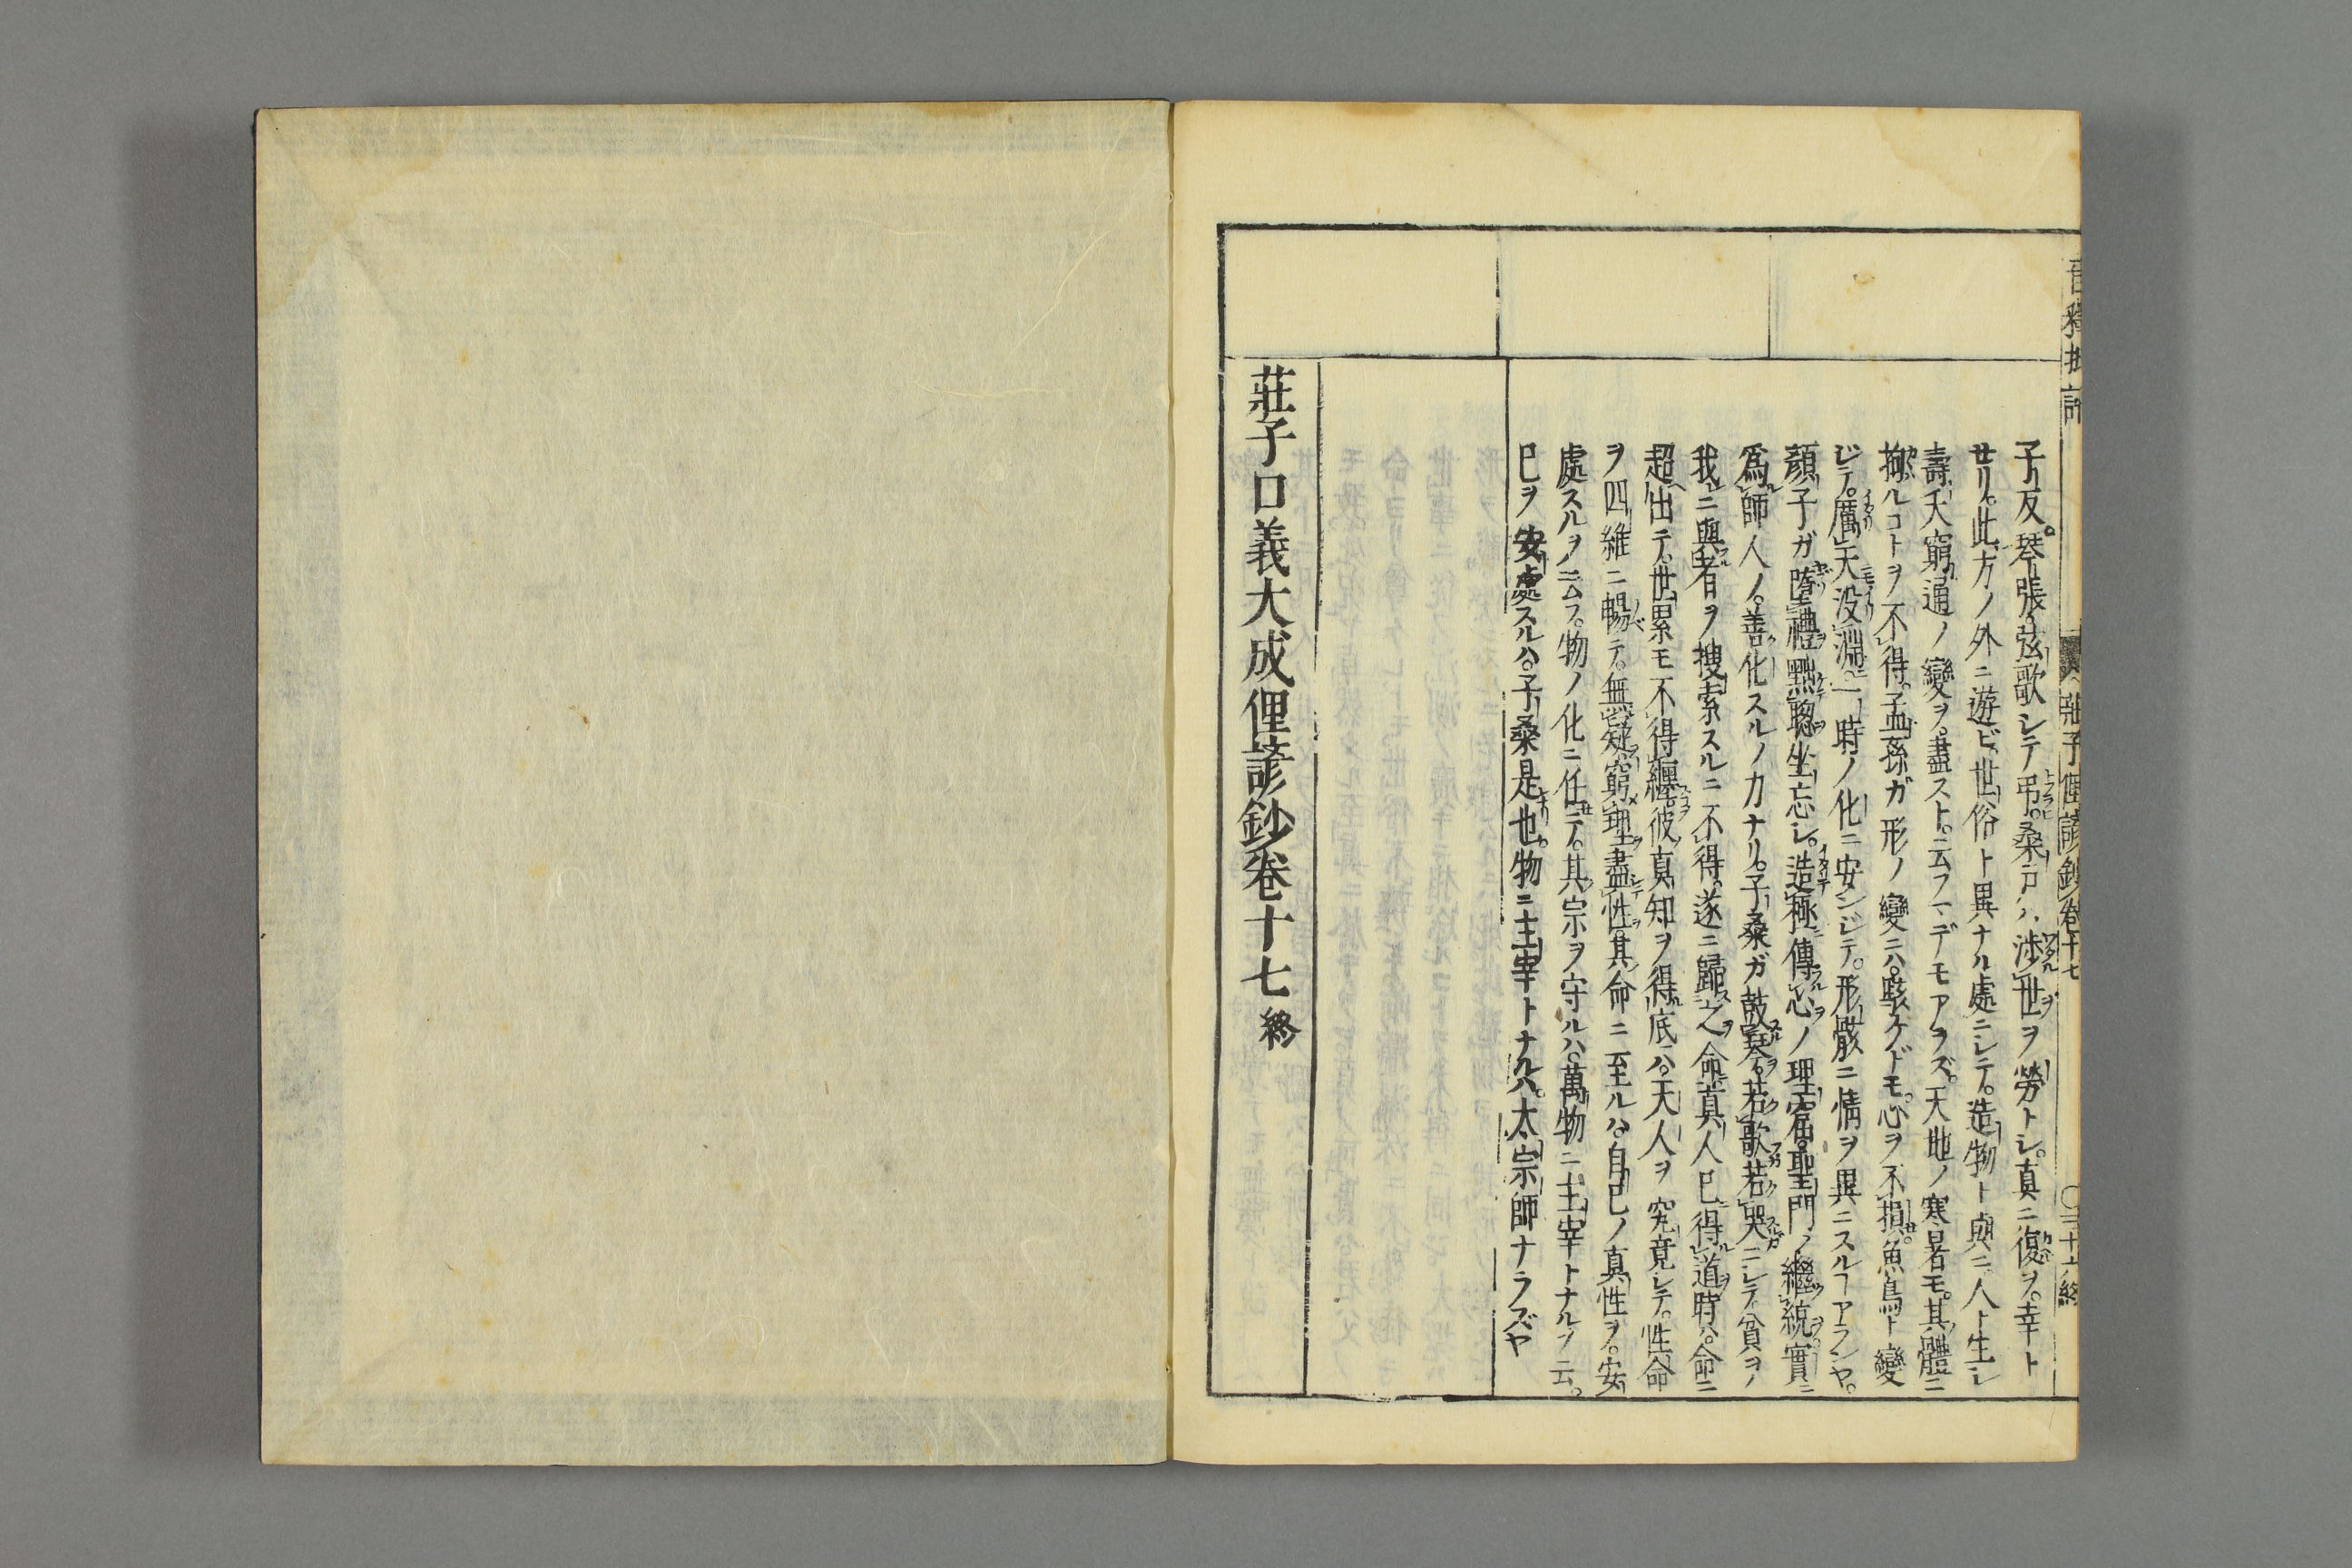 子反。琴張弦歌シテ弔。桑戸ハ渉世ヲ勞トシ。真ニ復ヲ。幸ト
セリ。此方ノ外ニ遊ビ。世俗ト異ナル處ニシテ。造物ト與ニ人ト生レ
壽夭窮通ノ變ヲ。盡スト。云フマデモアラズ。天地ノ寒暑モ。其體ニ
拘ルコトヲ不得。孟孫ガ形ノ變ニハ。駭ケドモ。心ヲ不損。魚鳥ト變
ジテ。厲天没淵。一時ノ化ニ安ンジテ。形骸ニ情ヲ異ニスルヿアランヤ。
顔子ガ墮禮黜聰坐忘シ。造極傳心ノ理窟。聖門ノ繼統實ニ
爲師人ノ。善化スルノ力ナリ。子桑ガ鼓琴。若歌若哭ニシテ貧ヲノ
我ニ與者ヲ捜索スルニ不得。遂ニ歸之命。真人已得道時ハ。命ニ
超出テ。世累モ不得纏。彼真知ヲ得底ハ。天人ヲ究竟シテ。性命
ヲ四維ニ暢テ。無疑窮理盡性。其命ニ至ルハ。自己ノ真性ヲ。安
處スルヲノ云フ。物ノ化ニ任テ。其宗ヲ守ルハ。萬物ニ主宰トナルヲ云。
已ヲ安處スルハ。子桑是也。物ニ主宰トナルハ。太宗師ナラズヤ
莊子口義大成俚諺鈔卷十七終
莊子俚諺鈔卷十七